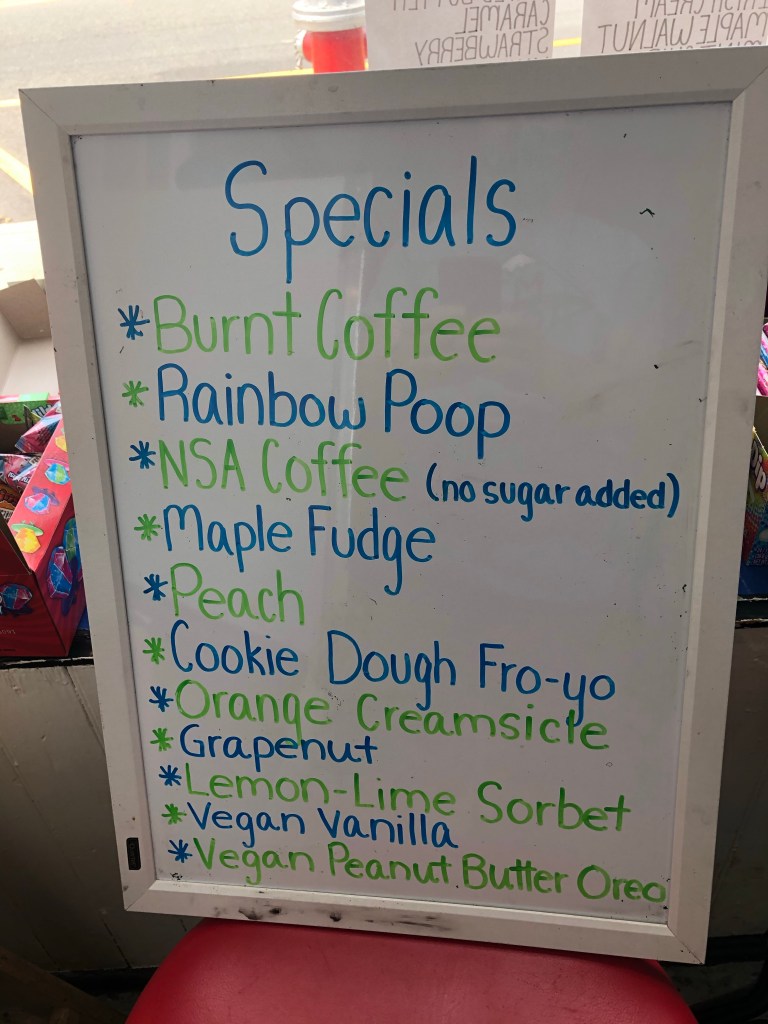 CARAMEL
STRAWBERRY
MAPLE WALNUT
Specials
*Burnt Coffee
*Rainbow Poop
*NSA Coffee (no sugar added)
*Maple Fudge
*Peach
*Cookie Dough Fro-yo
*Orange Creamsicle
*Grapenut
*Lemon-Lime Sorbet
*Vegan Vanilla
*Vegan Peanut Butter Oreo